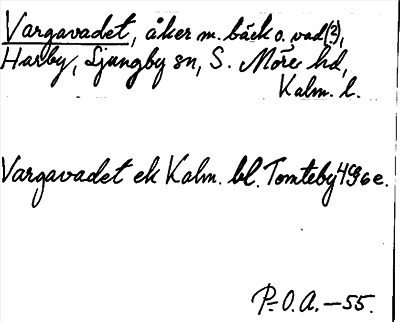 Vargavadet, åker m. bäck o. vad(?),
Harby, Ljungby sn, S. Möre hd,
Kalm. l.
Vargavadet ek Kalm. bl. Tomteby 4g6e.
P-O.A.-55.